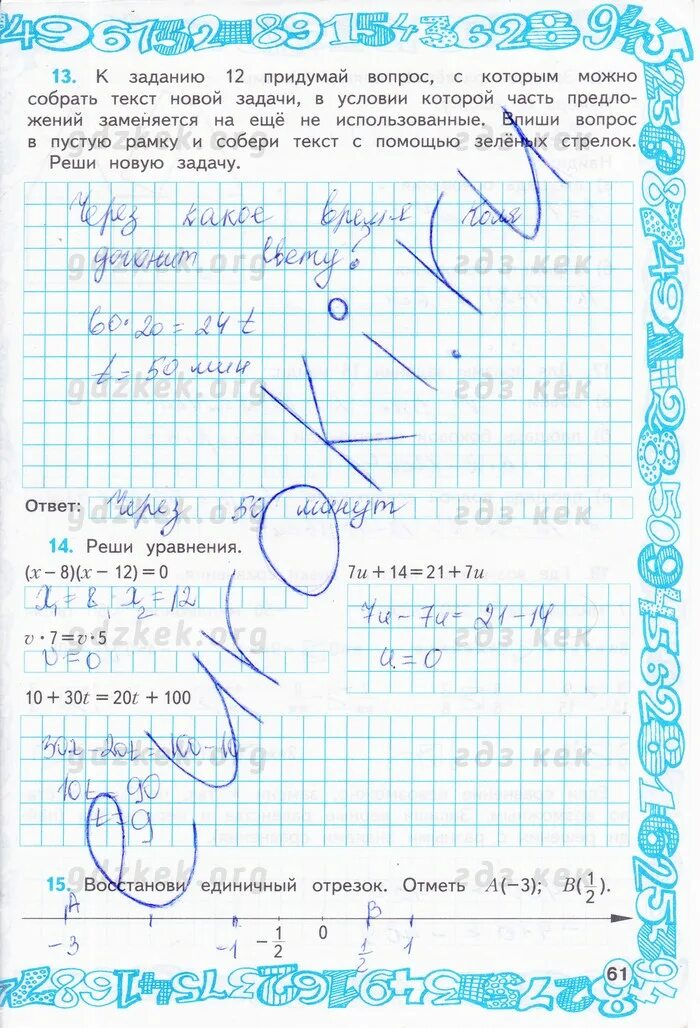 13. К заданию 12 придумай вопрос, с которым можно
собрать текст новой задачи, в условии которой часть предло-
жений заменяется на ещё не использованные. Впиши вопрос
в пустую рамку и собери текст с помощью зелёных стрелок.
Реши новую задачу.
Через какое время Коля
догонит Свету?
60·20=24t
t=50 мин
Ответ: Через 50 минут
14. Реши уравнения.
(x−8)(x−12)=0
x₁=8, x₂=12
7u+14=21+7u
7u−7u=21−14
u=0
v·7=v·5
v=0
10+30t=20t+100
30t−20t=100−10
10t=90
t=9
15. Восстанови единичный отрезок. Отметь A(−3); B(1/2).
A B
−3 −1 −1/2 0 1/2 1
61
gdzkek.org
гдз кек